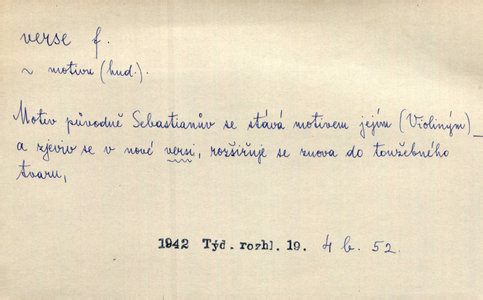 verse f.
~ motivu (hud.).
Motiv původně Sebastianův se stává motivem jejím (Violiným)_
a zjeviv se v nové versi, rozšiřuje se znova do toužebného
tvaru,
1942 Týd. rozhl. 19. 4 b. 52.